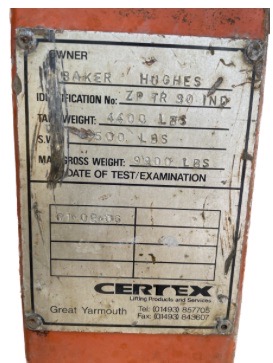 OWNER
BAKER HUGHES
IDENTIFICATION No: ZP TR 90 IND
WEIGHT: 4400 LBS
LBS
GROSS WEIGHT: LBS
DATE OF TEST/EXAMINATION
CERTEX
Lifting Products and Services
Great Yarmouth
Tel: (01493) 857705
Fax: (01493) 843607